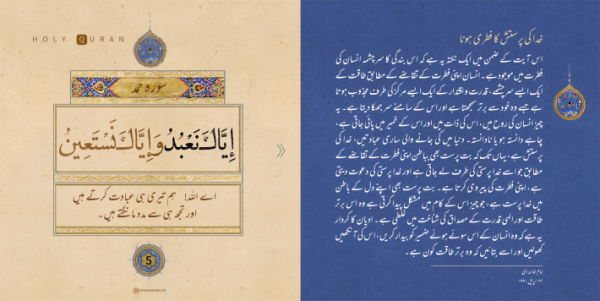 HOLY QURAN
سورہ حمد
إِيَّاكَ نَعْبُدُ وَإِيَّاكَ نَسْتَعِينُ
اے اللہ! ہم تیری ہی عبادت کرتے ہیں
اور تجھ ہی سے مدد مانگتے ہیں۔
5
خدا کی پرستش کا فطری ہونا
اس آیت کے ضمن میں ایک نکتہ یہ ہے کہ اس بندگی کا سرچشمہ انسان کی
فطرت میں موجود ہے۔ انسان اپنی فطرت کے تقاضے کے مطابق طاقت کے
ایک ایسے سرچشمے، قدرت و اقتدار کے ایک ایسے مرکز کی طرف مجذوب ہوتا
ہے جسے وہ خود سے برتر سمجھتا ہے اور اس کے سامنے سر جھکا دیتا ہے۔ یہ
چیز انسان کی روح میں، اس کی ذات میں اور اس کے ضمیر میں پائی جاتی ہے،
چاہے دانستہ ہو یا نادانستہ۔ دنیا میں کی جانے والی ساری عبادتیں، خدا کی
پرستش ہے، یہاں تک کہ بت پرست بھی باطن اپنی فطرت کے تقاضے کے
مطابق جو اسے خدا پرستی کی طرف لے جاتی ہے اور خدا پرستی کی دعوت دیتی
ہے، اپنی فطرت کی پیروی کرتا ہے۔ بت پرست بھی اپنے دل کے باطن
میں خدا پرست ہے، جو چیز اس کے کام میں مشکل پیدا کرتی ہے وہ اس برتر
طاقت اور الٰہی قدرت کے مصداق کی شناخت میں غلطی ہے۔ ادیان کا کردار
یہ ہے کہ وہ انسان کے اس سوئے ہوئے ضمیر کو بیدار کریں، اس کی آنکھیں
کھولیں اور اسے بتائیں کہ وہ برتر طاقت کون ہے۔
امام خامنہ ای